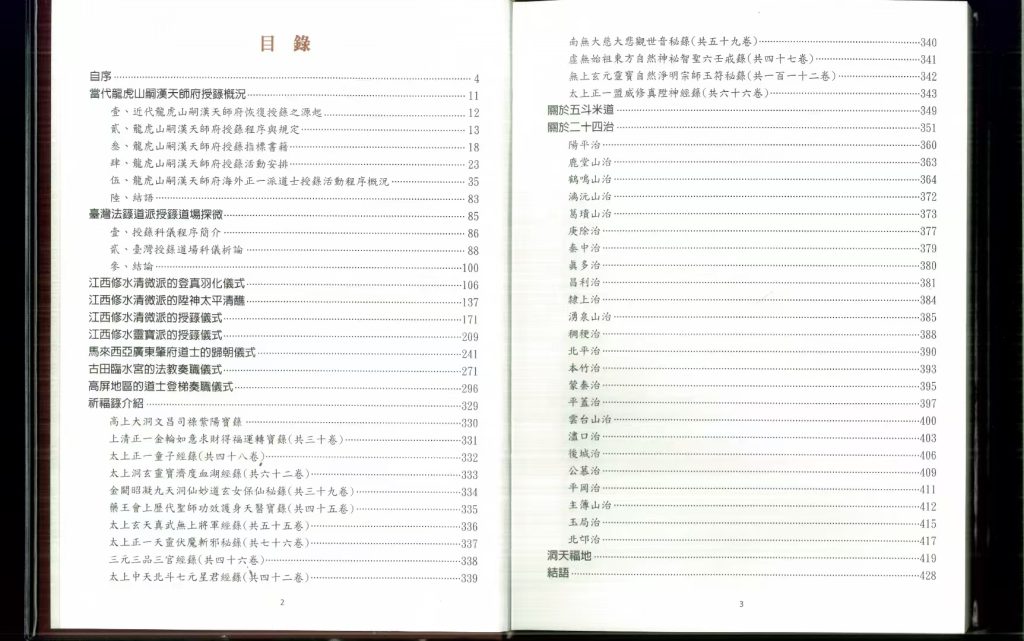 目 錄
自序 4
當代龍虎山嗣漢天師府授籙概況 11
壹、近代龍虎山嗣漢天師府恢復授籙之源起 12
貳、龍虎山嗣漢天師府授籙程序與規定 13
叁、龍虎山嗣漢天師府授籙指標書籍 18
肆、龍虎山嗣漢天師府授籙活動安排 23
伍、龍虎山嗣漢天師府海外正一派道士授籙活動程序概況 35
陸、結語 83
臺灣法籙道派授籙道場探微 85
壹、授籙科儀程序簡介 86
貳、臺灣授籙道場科儀析論 88
參、結論 100
江西修水清微派的登真羽化儀式 106
江西修水清微派的陞神太平清醮 137
江西修水清微派的授籙儀式 171
江西修水靈寶派的授籙儀式 209
馬來西亞廣東肇府道士的歸朝儀式 241
古田臨水宮的法教奏職儀式 271
高屏地區的道士登梯奏職儀式 296
祈福籙介紹 329
高上大洞文昌司祿紫陽寶籙 330
上清正一金輪如意求財得福運轉寶籙(共三十卷) 331
太上正一童子經籙(共四十八卷) 332
太上洞玄靈寶濟度血湖經籙(共六十二卷) 333
金闕昭凝九天洞仙妙道玄女保仙秘籙(共三十九卷) 334
藥王會上歷代聖師功效護身天醫寶籙(共四十五卷) 335
太上玄天真武無上將軍經籙(共五十五卷) 336
太上正一天靈伏魔斬邪秘籙(共七十六卷) 337
三元三品三官經籙(共四十六卷) 338
太上中天北斗七元星君經籙(共四十二卷) 339
2
南無大慈大悲觀世音秘籙(共五十九卷) 340
虛無始祖東方自然神秘智聖六壬戒籙(共四十七卷) 341
無上玄元靈寶自然淨明宗師玉符秘籙(共一百一十二卷) 342
太上正一盟威修真陞神經籙(共六十六卷) 343
關於五斗米道 349
關於二十四治 351
陽平治 360
鹿堂山治 363
鶴鳴山治 364
漓沅山治 372
葛璝山治 373
庚除治 377
秦中治 379
眞多治 380
昌利治 381
隸上治 384
湧泉山治 385
稠稉治 388
北平治 390
本竹治 393
蒙秦治 395
平蓋治 397
雲台山治 400
濜口治 403
後城治 406
公慕治 409
平岡治 411
主簿山治 412
玉局治 415
北邙治 417
洞天福地 419
結語 428
3